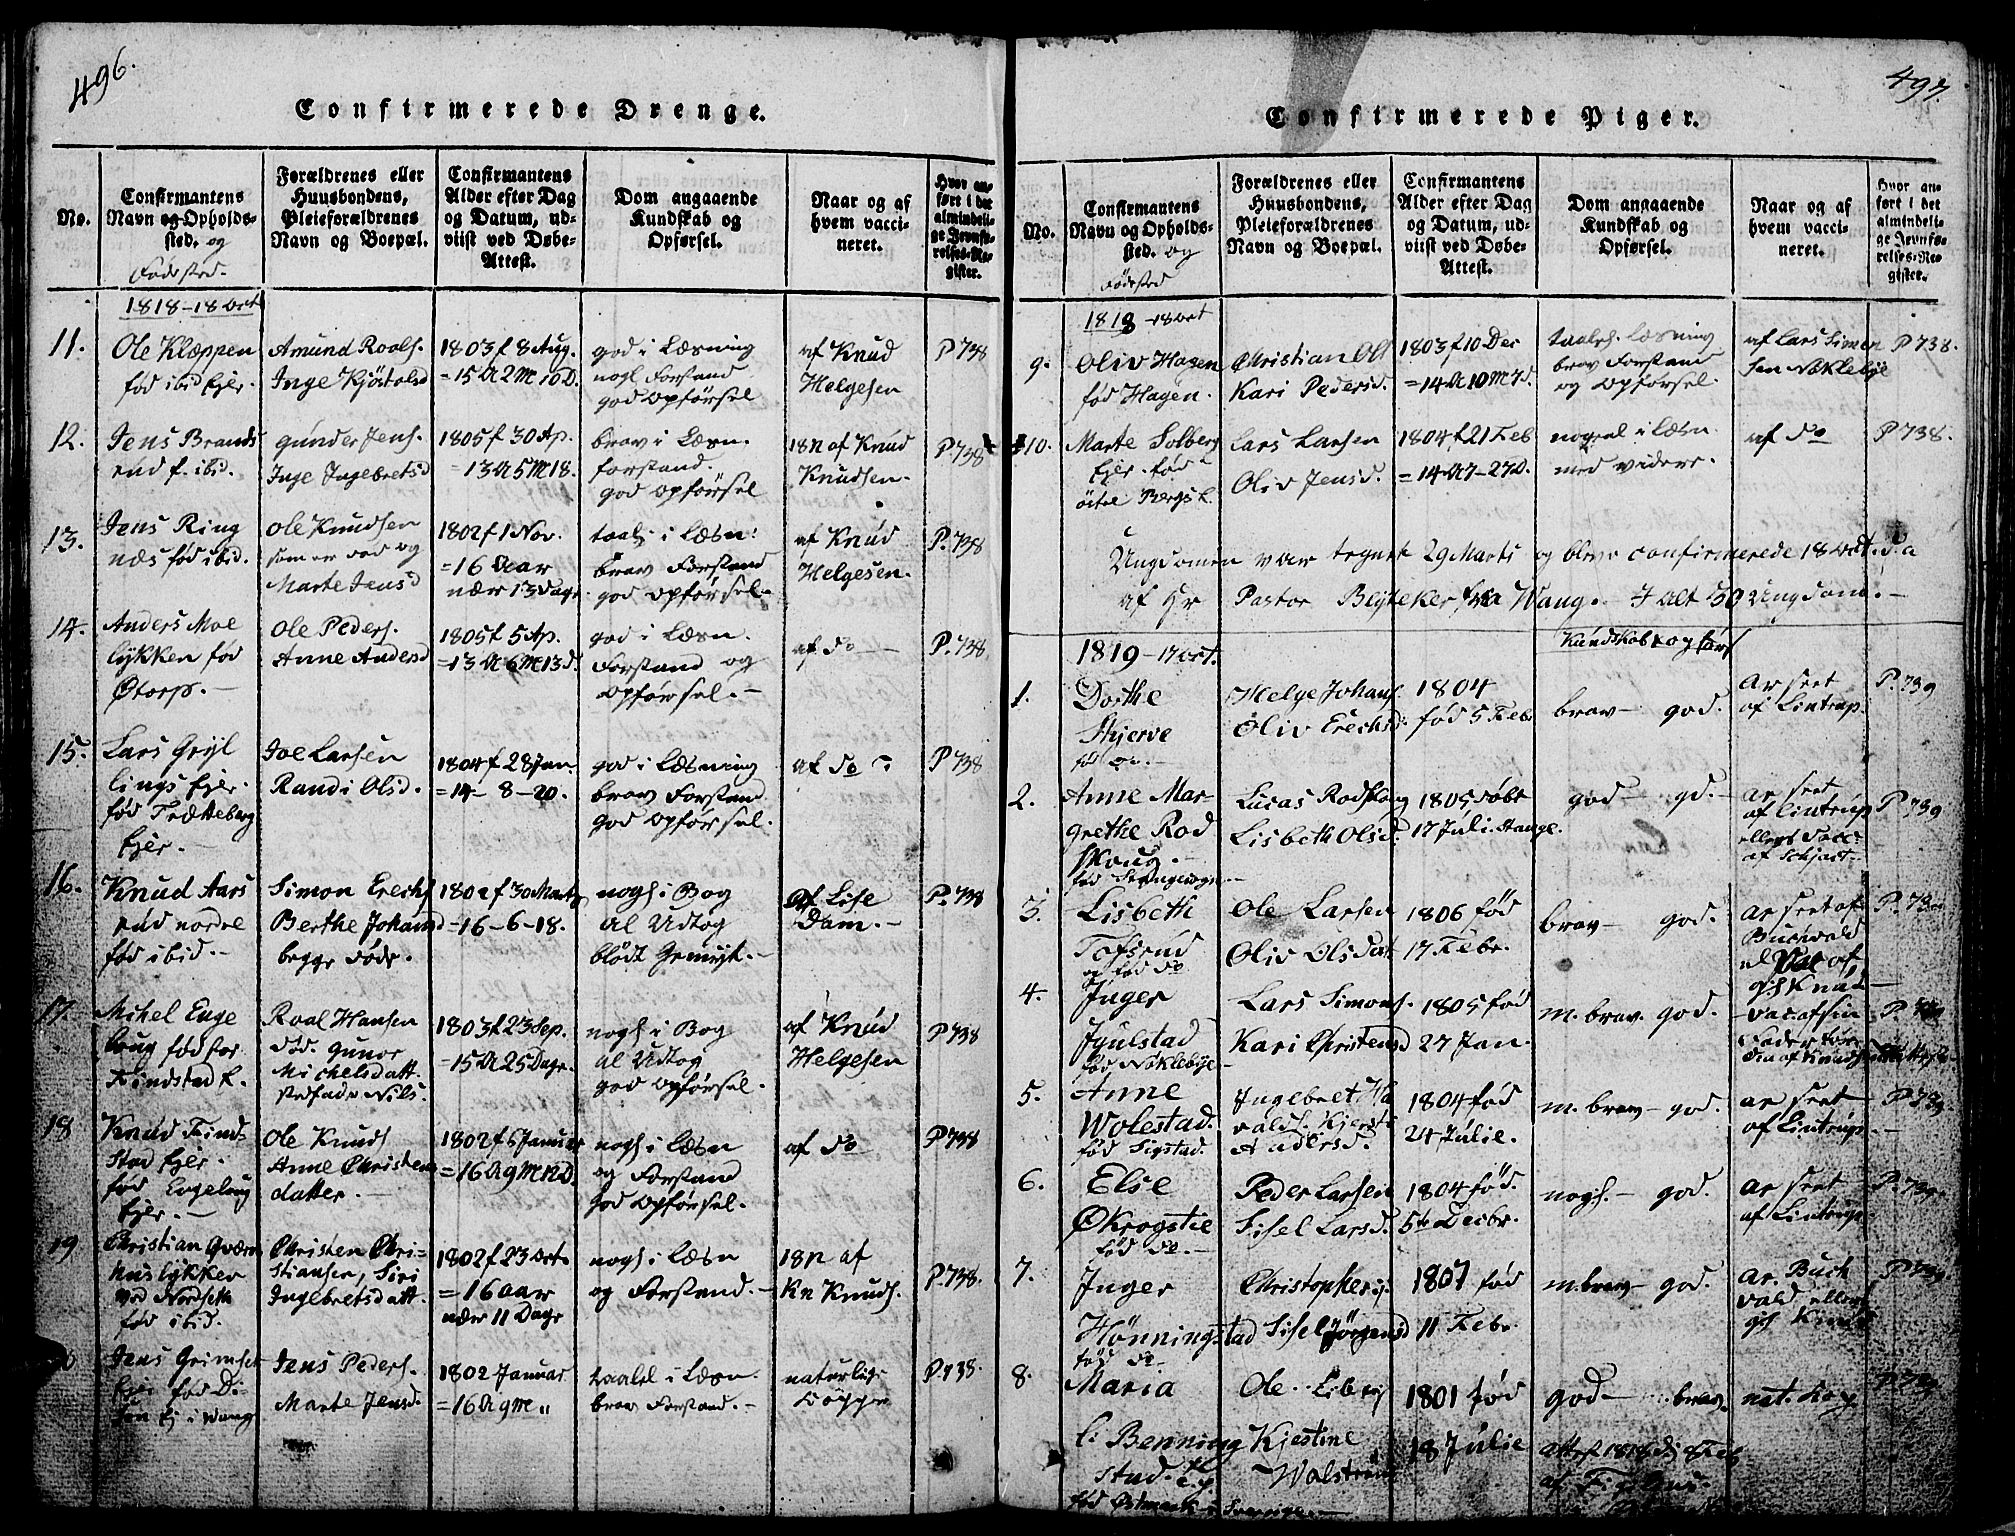 496.
Confirmerede Drenge.
No.
Confirmantens
Navn og Opholds-
sted. og
Fødested.
Forældrenes eller
Huusbondens,
Pleieforældrenes
Navn og Boepæl.
Confirmantens
Alder efter Dag
og Datum, ud-
viist ved Døbe-
Attest.
Dom angaaende
Kundskab og
Opførsel.
Naar og af
hvem vacci-
neret.
Hvor an-
ført i det
almindeli-
ge Jevnfø-
relses-Re-
gister.
1818-18 Oct
11.
Ole Klæppen
fød ibid Ejer.
Amund Roals.
Inge Kjøstolsd
1803 f 8 Aug.
=15 A 2 M 10 D.
god i Læsning
nogl Forstand
god Opførsel
af Knud
Helgesen
P 738
12.
Jens Brands
rud f. ibid.
Gunder Jens.
Inge Ingebretsd
1805 f 30 Ap.
=13 A 5 M 18.
brav i Læsn.
forstand.
god Opførsel
af Knud
Knudsen.
P 738
13.
Jens Ring
næs fød ibid.
Ole Knudsen
som er død og
Marte Jensd
1802 f 1 Nov.
=16 Aar
nær 13 Dage
taal. i Læsn.
brav Forstand
god Opførsel.
af Knud
Helgesen.
P. 738
14.
Anders Moe
lykken fød
Øtorp.
Ole Peders.
Anne Andersd
1805 f 5 Ap.
=13 A 6 M 13 d.
god i Læsn.
Forstand og
Opførsel.
af do
P. 738
15.
Lars Gryl
lings Ejer.
fød Frætteberg
Ejer.
Joe Larsen
Randi Olsd.
1804 f 28 Jan.
=14-8-20.
god i Læsning
brav Forstand
god Opførsel.
af do
P 738
16.
Knud Aars
rud nordre
fød ibid.
Simon Erechs
Berthe Johansd
begge døde.
1802 f 30 Marts
=16-6-18.
nogl i Bog
al Udtog
blødt Gemyt.
af Lise
Dam.
P. 738
17.
Mikel Enge
loug fød for
Findstad E.
Roal Hansen
død. Gunor
Michelsdatt
Stedfader Nils.
1803 f 23 Sep.
=15 A 25 Dage.
nogl i Bog
al Udtog
god Opførsel.
af Knud
Helgesen
P 738
18
Knud Find-
stad Ejer.
fød Engeloug
Ejer.
Ole Knuds
Anne Christens
datter.
1802 f 5 Januar
=16 A 9 M 12 D.
nogl i Læsn
og Forstand
God Opførsel.
af do
P. 738
19
Christian Qværn
huslykken
ved Nordseth
fød ibid.
Christen Chri-
stiansen, Siri
Ingebretsdatt.
1802 f 23 Oct.
=16 aar
nær 11 Dage
nogl i Læsn
og Forstand.
af
Kn Knuds.
P. 738.
Jens Grimset
Ejer fød Di-
sen Ej i Wang
Jens Peders.
Marte Jensd.
1802 Januar
=16 A 9 M "
taalel i Læsn.
brav Forstand.
naturlige
Kopper
P. 738.
497.
Confirmerede Piger.
No.
Confirmantens
Navn og Opholds-
sted. og
Fødested
Forældrenes eller
Huusbondens,
Pleieforældrenes
Navn og Boepæl.
Confirmantens
Alder efter Dag
og Datum, ud-
viist ved Døbe-
Attest.
Dom angaaende
Kundskab og
Opførsel.
Naar og af
hvem vacci-
neret.
Hvor an-
ført i det
almindeli-
ge Jevnfø-
relses-Re-
gister.
1818-18 Oct
9.
Oliv Hagen
fød Hagen.
Christian Ols
Kari Pedersd.
1803 f 10 Dec
=14 A 10 M 7 d.
taalel. Læsning
brav Forstand
og Opførsel.
af Lars Simen
sen Nøklebye
P 738.
10.
Marte Solberg
Ejer. fød
Lars Larsen
Oliv Jensd.
1804 f 21 Feb
=14 A 7-27 D.
nogeel i Læsn.
med videre.
af do
P 738.
Ungdomen var tegnet 29 Marts og blev confirmerede 18 Oct. d.a
af Hr Pastor Blejteker fra Wang. I alt 30 Ungdom.
1819-17 Oct.
Kundskab & Opførs
1.
Dorthe
Skjerve
Helge Johans.
Oliv Erechsd.
1804
fød 5 Febr
brav - god.
ar seet
af Lintrup
P. 739
2.
Anne Mar-
grethe Rod
skoug.
Lucas Rodskoug
Lisbeth Olsd.
1805 døbt
17 Juli. Stange.
god - gd.
ar seet
af Lintrup
P 739
3.
Lisbeth
Tofsrud
og fød do
Ole Larsen
Oliv Olsdat
1806 fød
17 Febr.
brav - god.
ar seet af
Buchvald
P. 739
4.
Inger
Jyulstad
fød Nøklebye
Lars Simons.
Kari Christensd
1805 fød
27 Jan.
m. brav. god.
P. 739
5.
Anne
Wolestad.
fød Sigstad.
Ingebret Ha
valds. Kjersti
Andersd.
1804 fød
24 Julie.
m. brav - god.
ar seet
af Lintrup.
P. 739
6.
Else
Økrogstie
fød do.
Peder Larsen
Sisel Larsd.
1804 fød.
5te Decbr.
nogl. - god.
ar seet
af Lintrup
P. 739.
7.
Inger
Hønningstad
fød do
Christophers.
Sisel Jørgensd
1807 fød
11 Febr.
m. brav - god.
ar. Buch
vald ellers
P. 739
8.
Maria
Benning
stad.
Ole
Kjestine
1801 fød
18 Julie
god - brav.
nat. Kop.
P 739